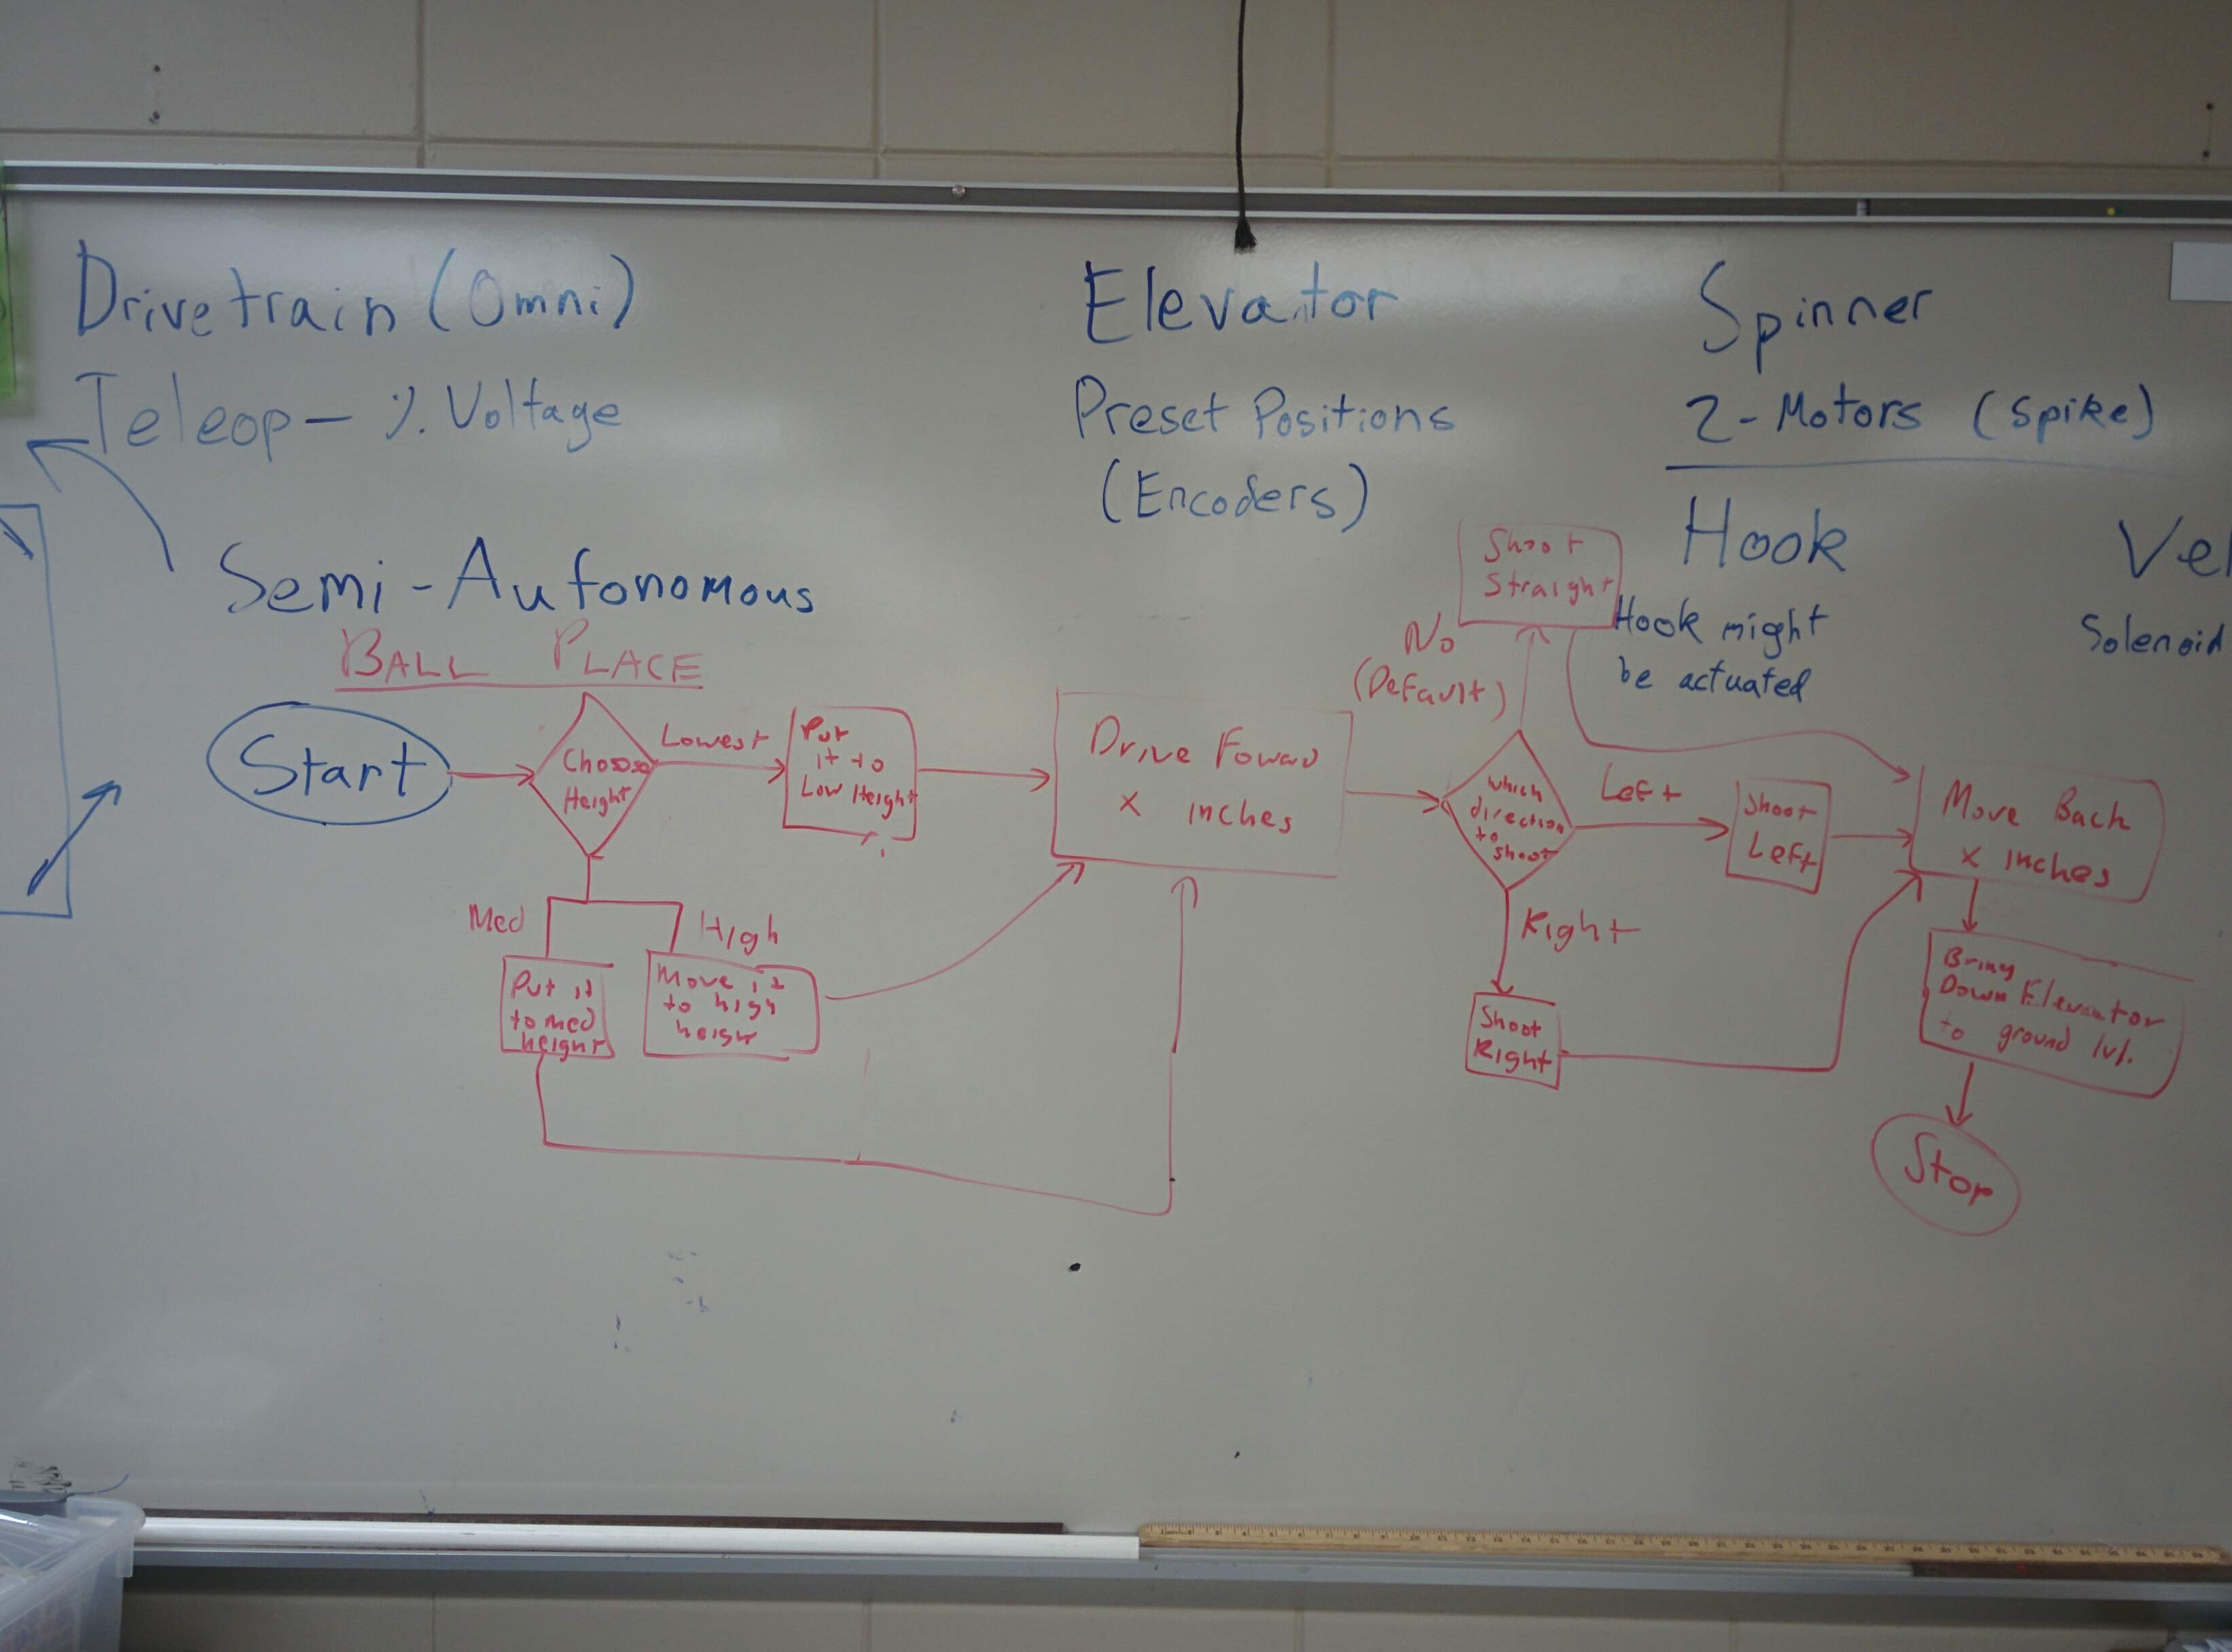 Drivetrain (Omni)
Teleop - %. Voltage
Elevator
Preset Positions
(Encoders)
Spinner
2-Motors (Spike)
Hook
Hook might
be actuated
Vel
Solenoid
Semi-Autonomous
BALL PLACE
Start
Choose
Height
Lowest
Put
it to
Low Height
Med
Put it
to med
height
High
Move it
to high
height
Drive Foward
X inches
which
direction
to
shoot
No
(Default)
Shoot
Straight
Left
Shoot
Left
Right
Shoot
Right
Move Back
X inches
Bring
Down Elevator
to ground lvl.
Stop